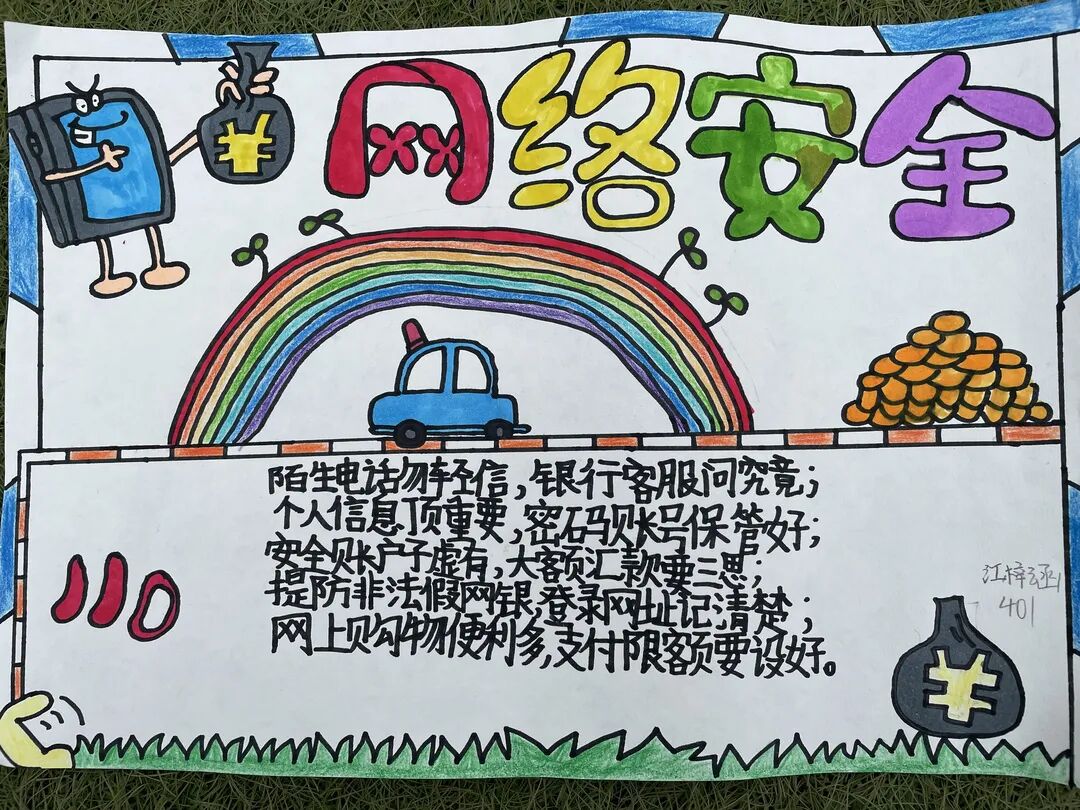 ¥
网络安全
陌生电话勿轻信，银行客服问究竟；
个人信息顶重要，密码账号保管好；
安全账户子虚有，大额汇款要三思；
提防非法假网银，登录网址记清楚；
网上购物便利多，支付限额要设好。
110
江梓涵
401
¥